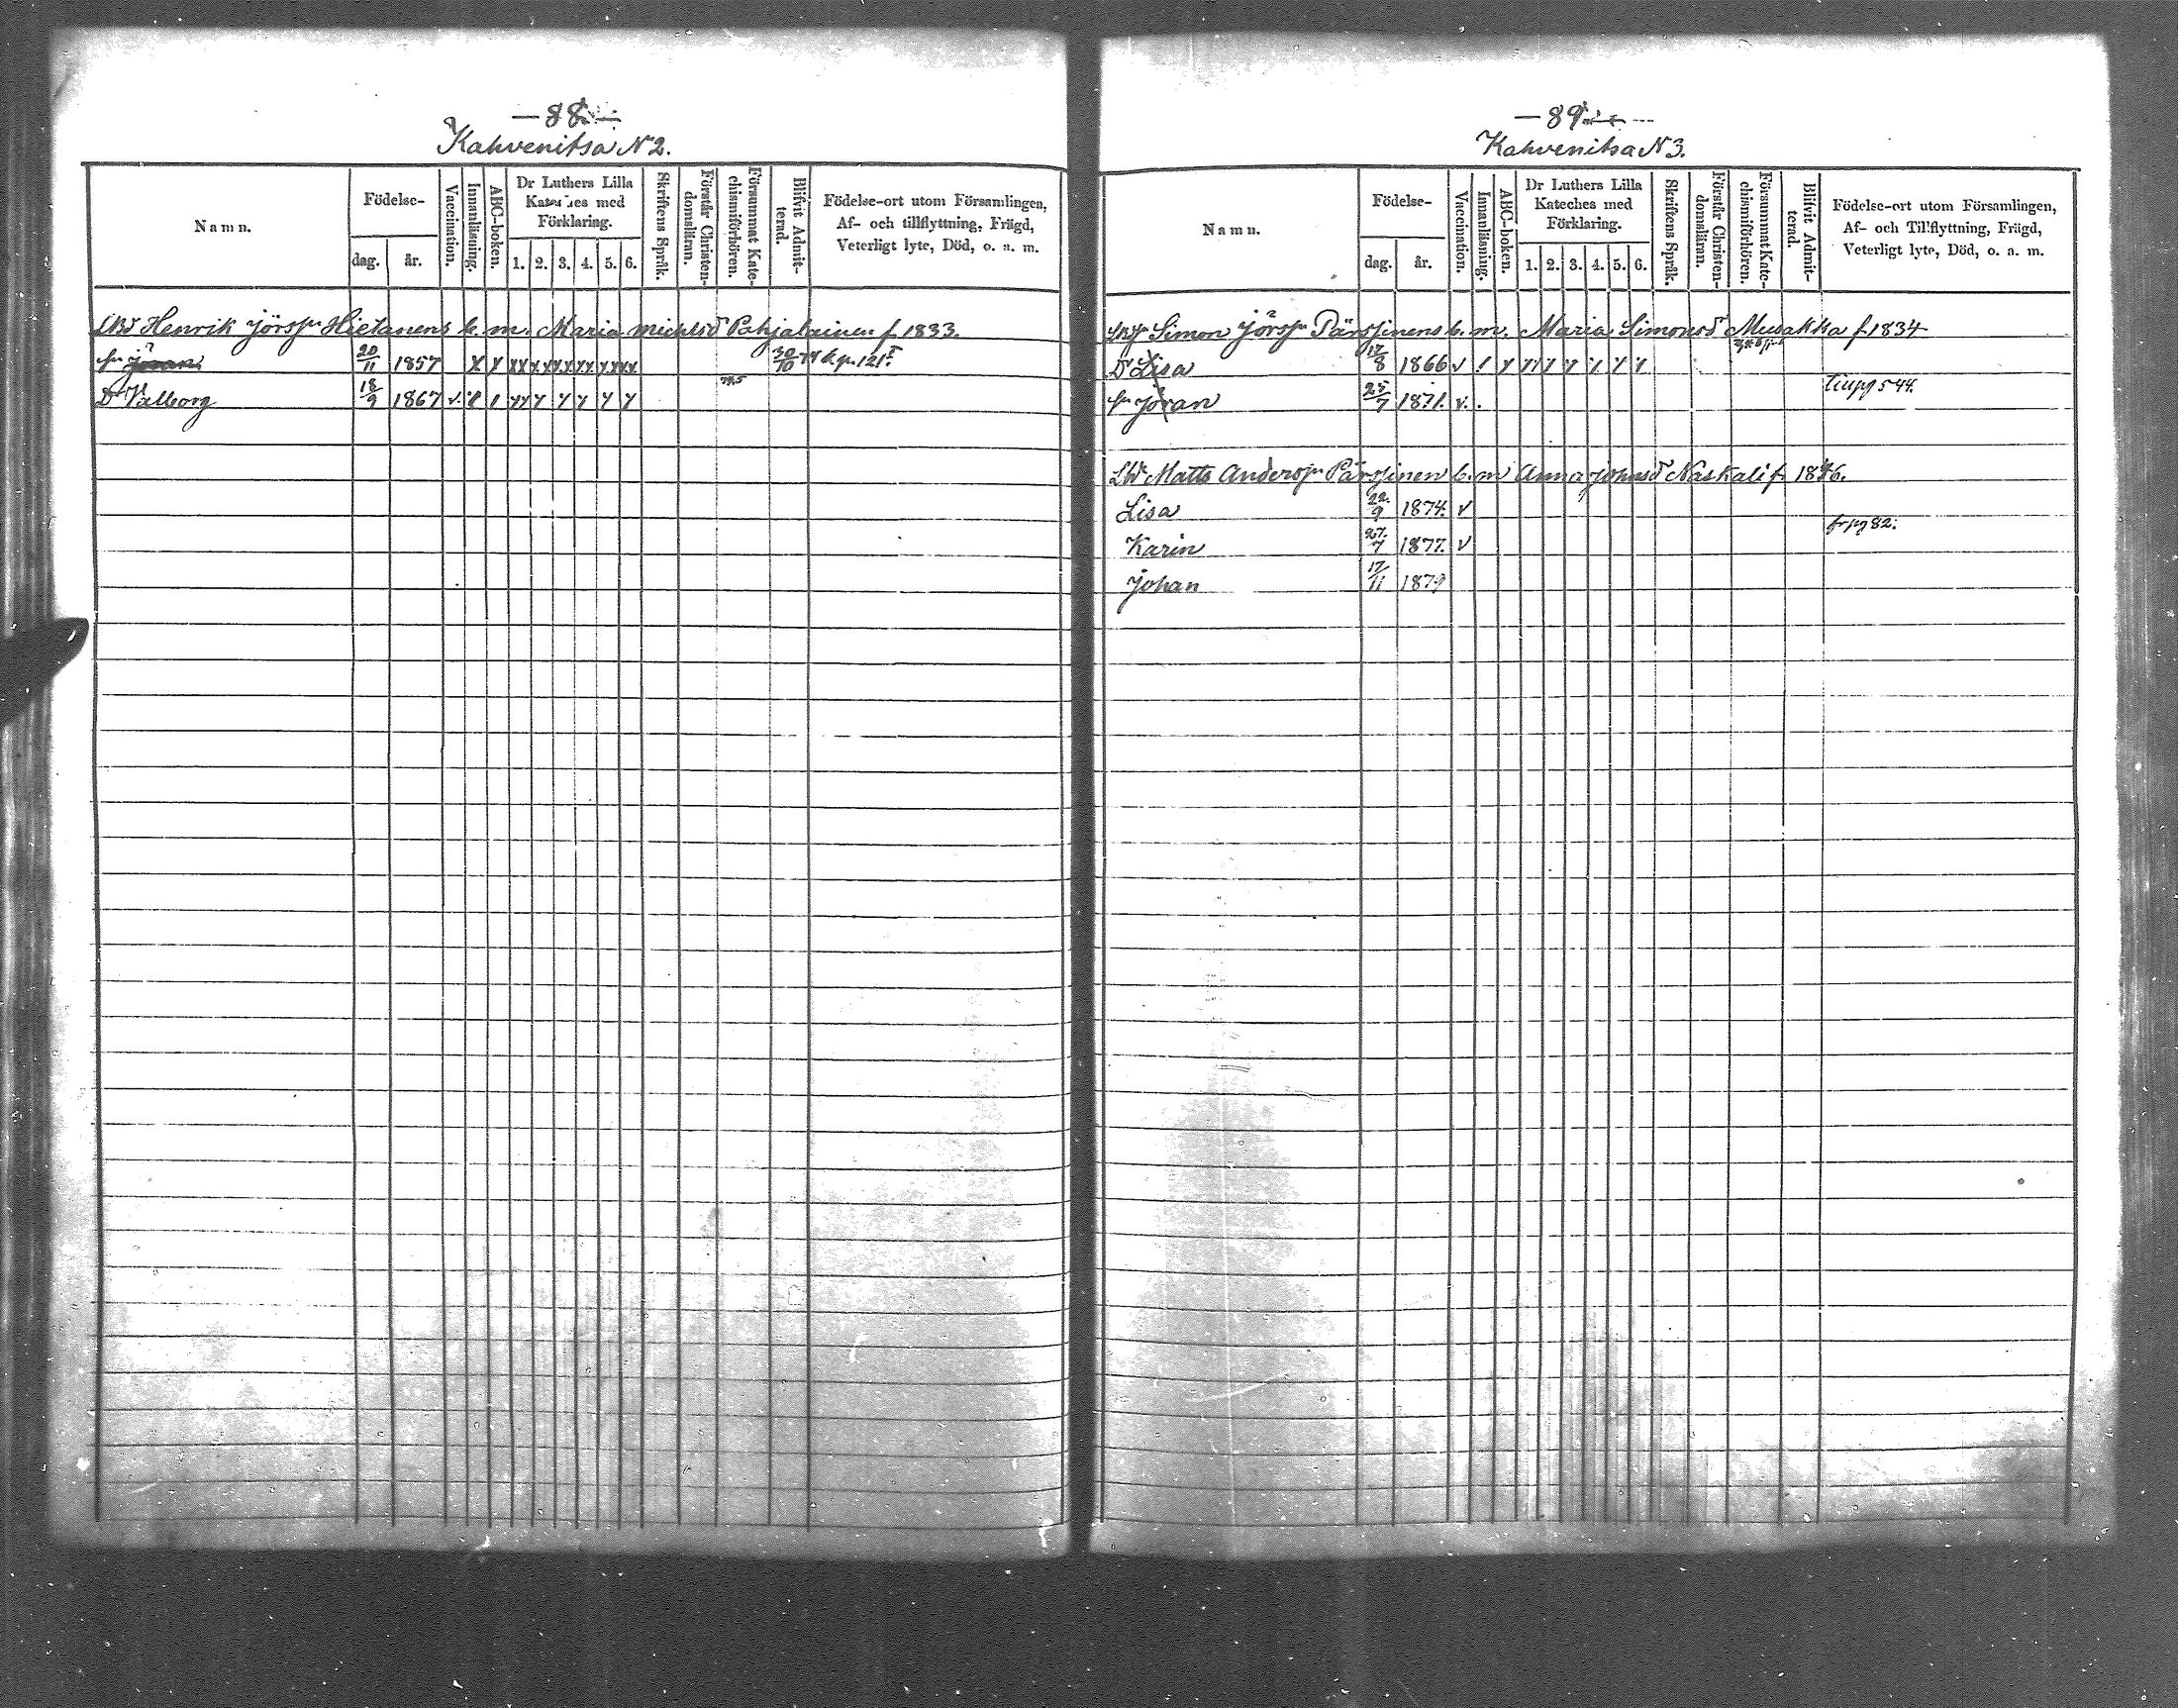 — 88 —
Kahvenitsa N 2.
Namn.
Födelse-
dag. år.
Vaccination.
Innanläsning.
ABC-boken.
Dr Luthers Lilla
Kateches med
Förklaring.
1. 2. 3. 4. 5. 6.
Skriftens Språk.
Förstår Christen-
domsläran.
Försummat Kate-
chismiförhören.
Blifvit Admit-
terad.
Födelse-ort utom Församlingen,
Af- och tillflyttning, Frägd,
Veterligt lyte, Död, o. a. m.
Henrik Jörsšn Hietanens b. m. Maria Michelsd Pohjalainen f 1833.
Jöran 20/11 1857 30/10
Dr Valborg 18/9 1867
— 89 —
Kahvenitsa N 3.
Namn.
Födelse-
dag. år.
Vaccination.
Innanläsning.
ABC-boken.
Dr Luthers Lilla
Kateches med
Förklaring.
1. 2. 3. 4. 5. 6.
Skriftens Språk.
Förstår Christen-
domsläran.
Försummat Kate-
chismiförhören.
Blifvit Admit-
terad.
Födelse-ort utom Församlingen,
Af- och Tillflyttning, Frägd,
Veterligt lyte, Död, o. a. m.
Simon Jörsšn Pärssinens b. m. Maria Simonsd Musakka f 1834
Dr Lisa 17/8 1866 v
Jöran 25/7 1871. v. 544.
Matts Anderssn Pärssinen b. m Anna Johnsd Naskali f.
Lisa 22/9 1874. v
Karin 27/7 1877. v 82.
Johan 17/11 1879